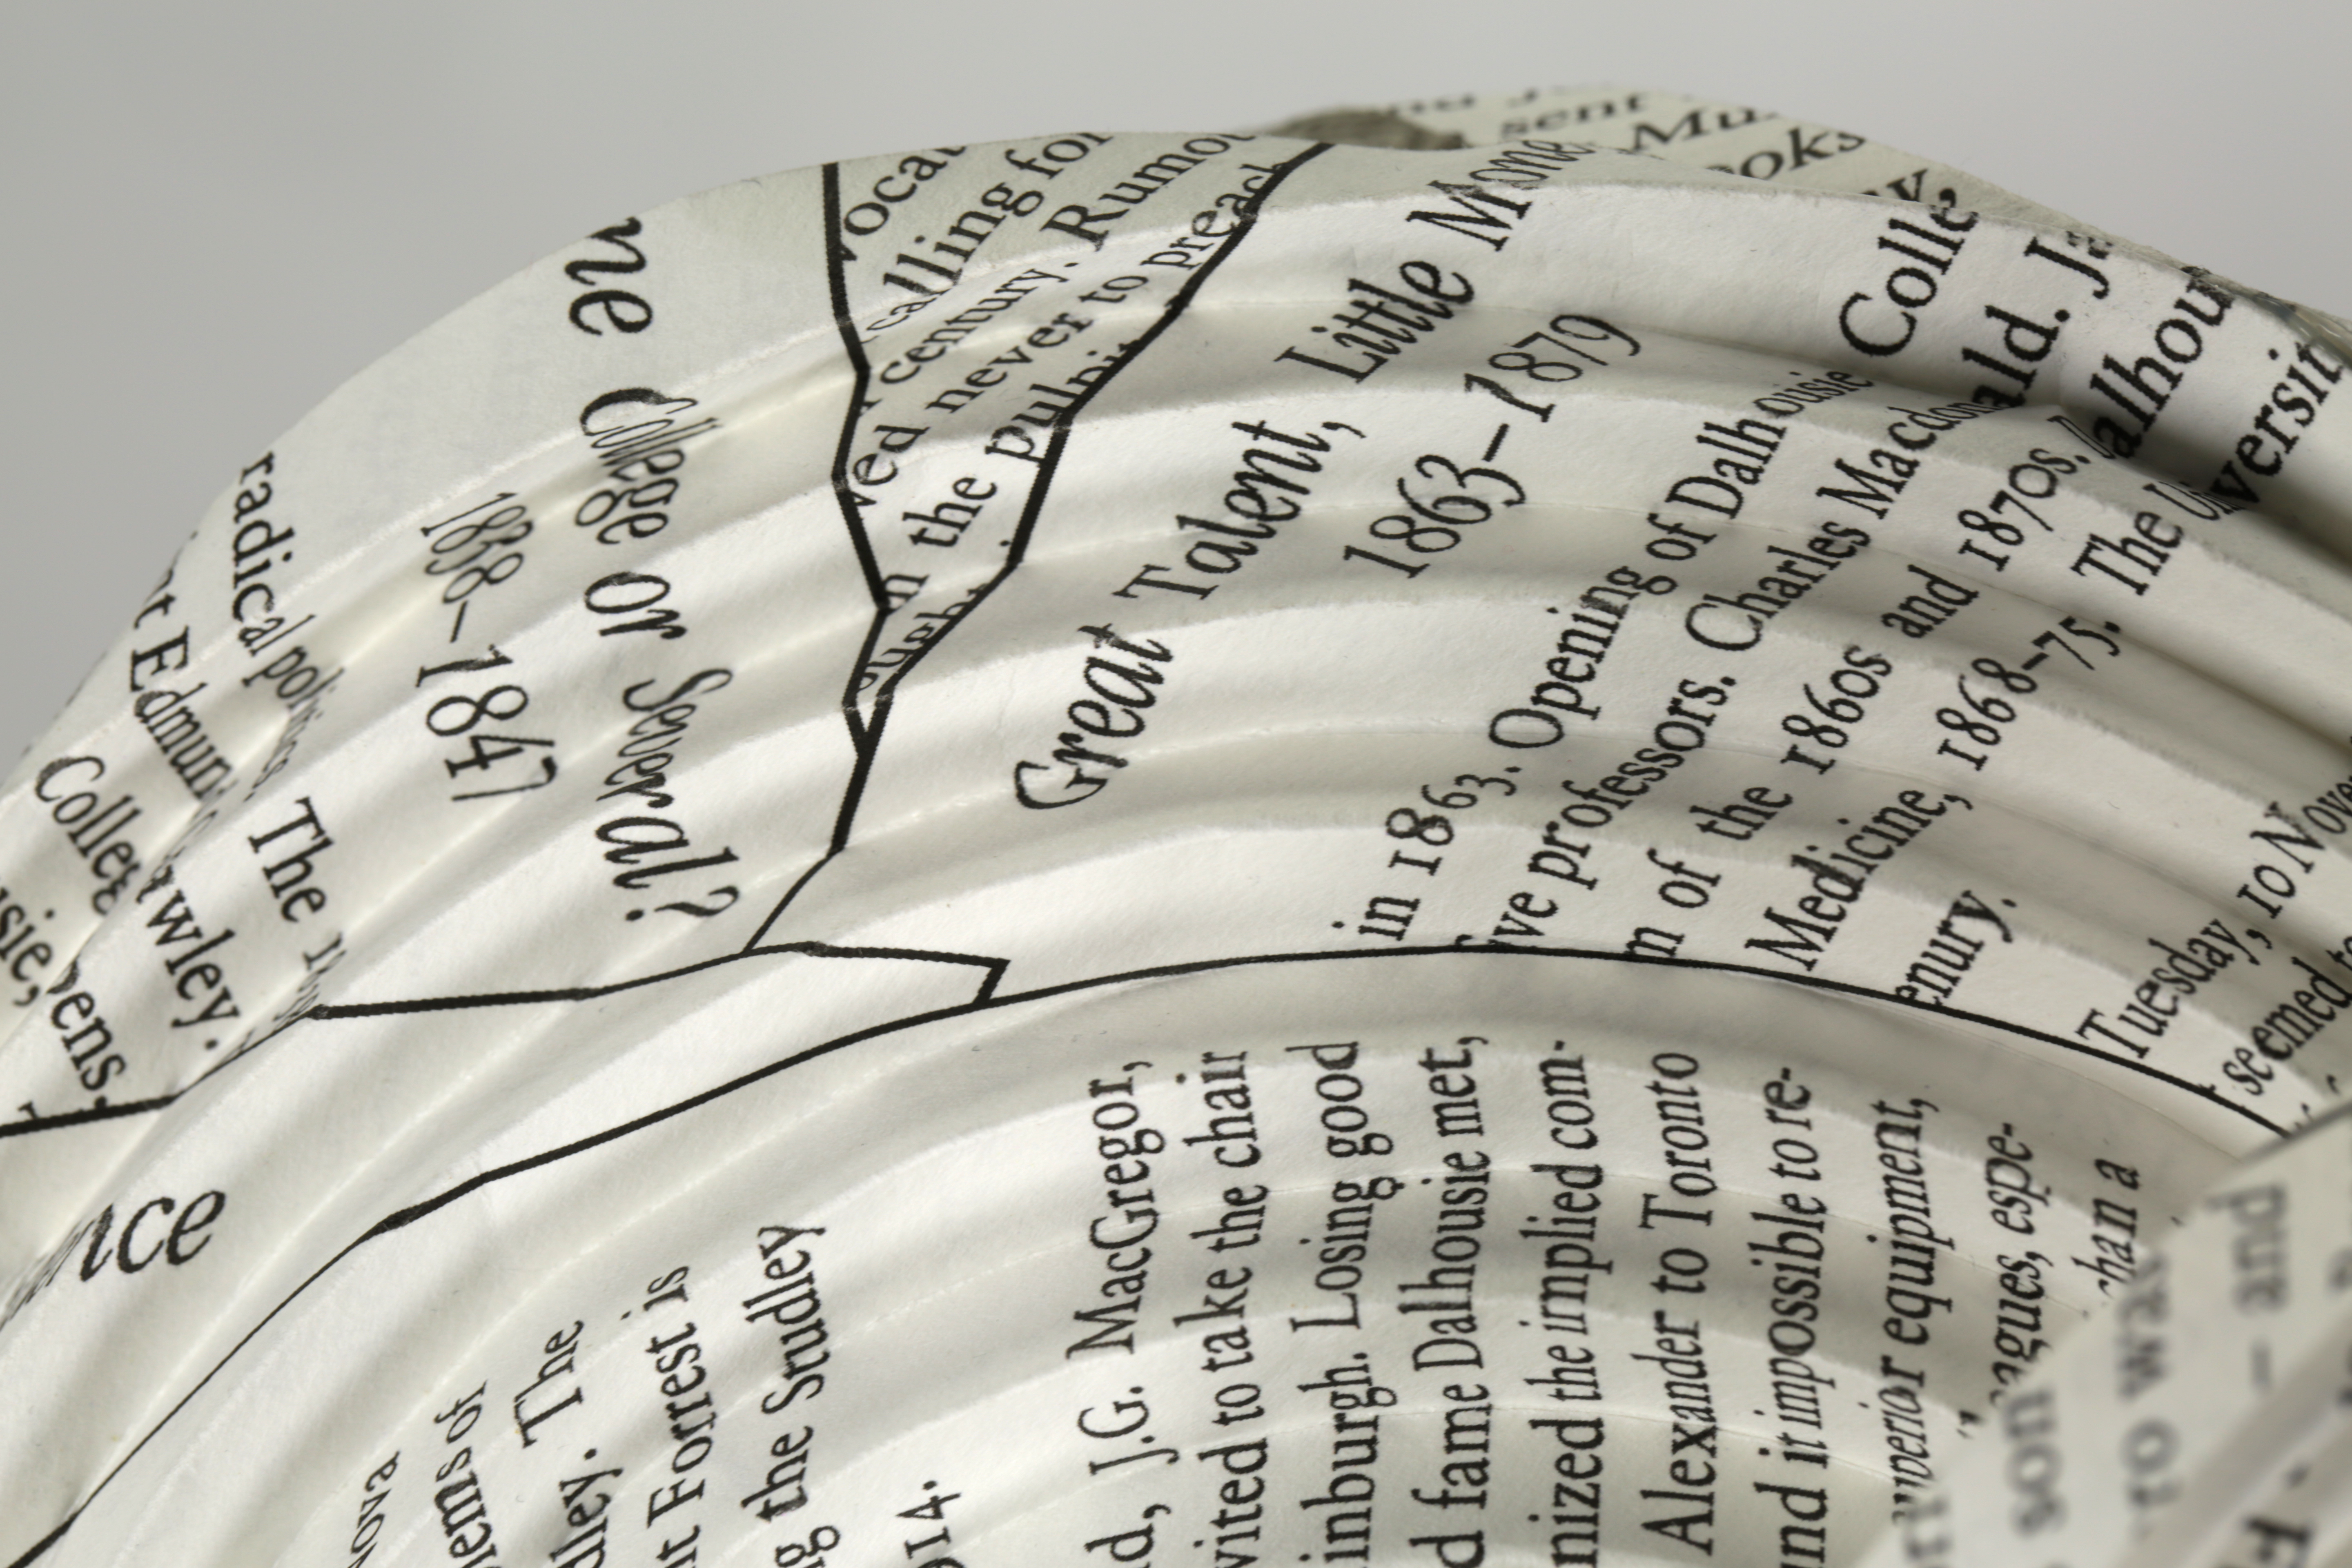 ne College or Several?
1838–1847
radical politics. The
Edmund
College
awley.
usie,
ens.
nce
vocat
calling for
century. Rumo
ved never to preach
in the pulpit
ough.
Great Talent, Little Mone
1863–1879
in 1863. Opening of Dalhousie Colle
ive professors. Charles Macdonald. Ja
m of the 1860s and 1870s. Dalhou
Medicine, 1868–75. The Universit
enury.
Tuesday, 10 Nove
seemed to
sent
Mu
ooks
nova
lems of
dley. The
nt Forrest is
ng the Studley
914.
d, J.G. MacGregor,
vited to take the chair
inburgh. Losing good
d fame Dalhousie met,
nized the implied com-
Alexander to Toronto
and it impossible to re-
superior equipment,
eagues, espe-
than a
son
to war
– and